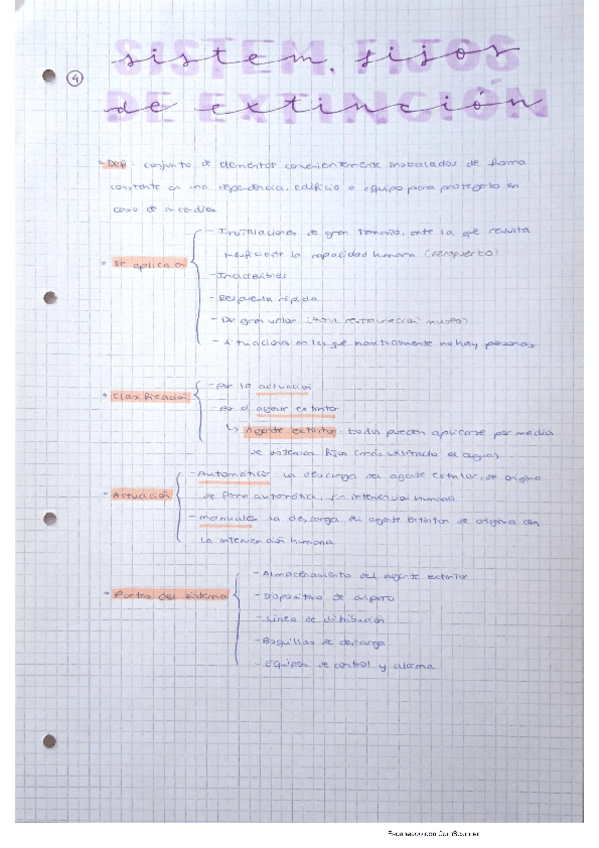 ④
SISTEM. FIJOS
sistem. fijos
DE EXTINCIÓN
de extinción
• DEF: conjunto de elementos convenientemente instalados de forma
constante en una dependencia, edificio o equipo para protegerlo en
caso de incendio.
• Se aplica a
- Instalaciones de gran tamaño, ante la que resulta
insuficiente la capacidad humana (aeropuerto)
- Inaccesibles
- Respuesta rápida
- De gran valor museo)
- Situaciones en las que normalmente no hay personas
• Clasificación
- Por la actuación
- Por el agente extintor
↳ Agente extintor: todos pueden aplicarse por medio
de sistemas fijos (más utilizado el agua)
• Actuación
- Automático: la descarga del agente extintor, se origina
de forma automática, sin intervención humana
- manuales: la descarga del agente extintor se origina con
la intervención humana.
• Partes del sistema
- Almacenamiento del agente extintor
- Dispositivo de disparo
- Línea de distribución
- Boquillas de descarga
- Equipos de control y alarma
Escaneado con CamScanner